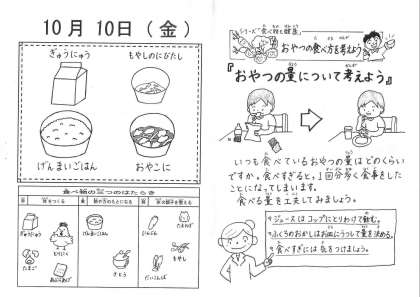 10月 10日（金）
ぎゅうにゅう
もやしのにびたし
げんまいごはん
おやこに
食べ物の三つのはたらき
体をつくる
熱や力のもとになる
体の調子を整える
ぎゅうにゅう
とりにく
たまご
あぶらあげ
げんまいごはん
さとう
にんじん
たまねぎ
もやし
だいこんば
シリーズ「食べ物と健康」
おやつの食べ方を考えよう
『おやつの量について考えよう』
いつも食べているおやつの量はどのくらい
ですか。食べすぎると、1回分多く食事をした
ことになってしまいます。
食べる量を工夫してみましょう。
ジュースはコップにとりわけて飲む。
ふくろのおかしはお皿にうつして量を決める。
食べすぎには気をつけましょう。